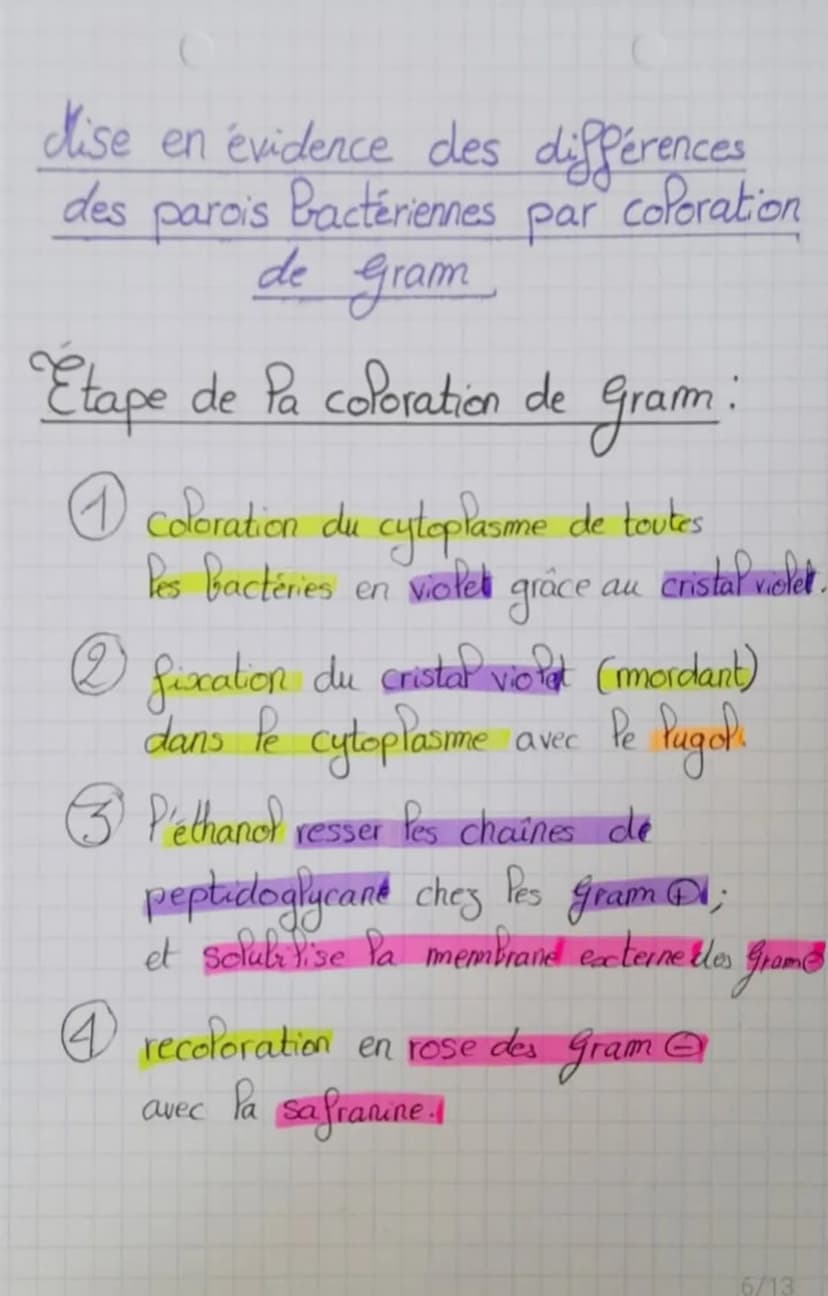 Mise en évidence des différences
des parois bactériennes par coloration
de Gram
Étape de la coloration de Gram :
① coloration du cytoplasme de toutes
les bactéries en violet grâce au cristal violet.
② fixation du cristal violet (mordant)
dans le cytoplasme avec le lugol.
③ l'éthanol resser les chaînes de
peptidoglycane chez les gram ⊕ ;
et solubilise la membrane externe des gram ⊖
④ recoloration en rose des gram ⊖
avec la safranine.
6/13